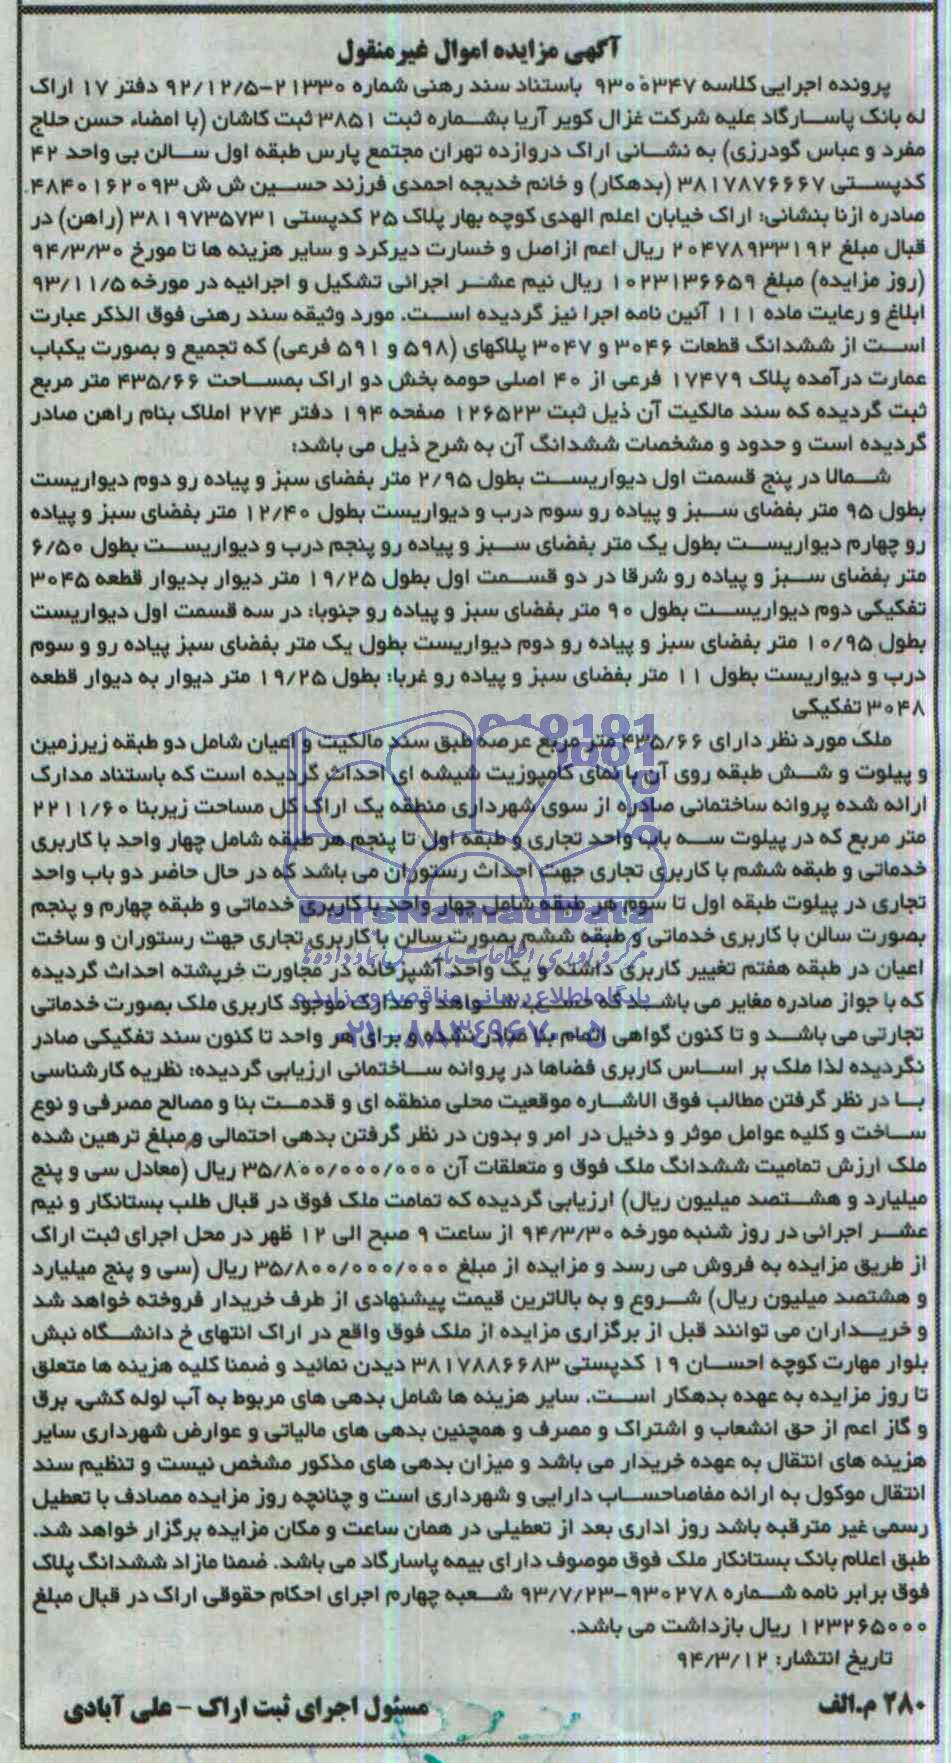 آگهی مزایده اموال غیرمنقول
پرونده اجرایی کلاسه ۹۳۰۰۳۴۷ باستناد سند رهنی شماره ۲۱۳۳۰-۹۲/۱۲/۵ دفتر ۱۷ اراک
له بانک پاسارگاد علیه شرکت غزال کویر آریا بشماره ثبت ۳۸۵۱ ثبت کاشان (با امضاء حسن حلاج
مفرد و عباس گودرزی) به نشانی اراک دروازه تهران مجتمع پارس طبقه اول سالن بی واحد ۴۲
کدپستی ۳۸۱۷۸۷۶۶۶۷ (بدهکار) و خانم خدیجه احمدی فرزند حسین ش ش ۴۸۴۰۱۶۲۰۹۳
صادره ازنا بنشانی: اراک خیابان اعلم الهدی کوچه بهار پلاک ۲۵ کدپستی ۳۸۱۹۷۳۵۷۳۱ (راهن) در
قبال مبلغ ۲۰۴۷۸۹۳۳۱۹۲ ریال اعم ازاصل و خسارت دیرکرد و سایر هزینه ها تا مورخ ۹۴/۳/۳۰
(روز مزایده) مبلغ ۱۰۲۳۱۳۶۶۵۹ ریال نیم عشر اجرائی تشکیل و اجرائیه در مورخه ۹۳/۱۱/۵
ابلاغ و رعایت ماده ۱۱۱ آئین نامه اجرا نیز گردیده است. مورد وثیقه سند رهنی فوق الذکر عبارت
است از ششدانگ قطعات ۳۰۴۶ و ۳۰۴۷ پلاکهای (۵۹۸ و ۵۹۱ فرعی) که تجمیع و بصورت یکباب
عمارت درآمده پلاک ۱۷۴۷۹ فرعی از ۴۰ اصلی حومه بخش دو اراک بمساحت ۴۳۵/۶۶ متر مربع
ثبت گردیده که سند مالکیت آن ذیل ثبت ۱۲۶۵۲۳ صفحه ۱۹۴ دفتر ۲۷۴ املاک بنام راهن صادر
گردیده است و حدود و مشخصات ششدانگ آن به شرح ذیل می باشد:
شمالا در پنج قسمت اول دیواریست بطول ۲/۹۵ متر بفضای سبز و پیاده رو دوم دیواریست
بطول ۹۵ متر بفضای سبز و پیاده رو سوم درب و دیواریست بطول ۱۲/۴۰ متر بفضای سبز و پیاده
رو چهارم دیواریست بطول یک متر بفضای سبز و پیاده رو پنجم درب و دیواریست بطول ۶/۵۰
متر بفضای سبز و پیاده رو شرقا در دو قسمت اول بطول ۱۹/۲۵ متر دیوار بدیوار قطعه ۳۰۴۵
تفکیکی دوم دیواریست بطول ۹۰ متر بفضای سبز و پیاده رو جنوبا: در سه قسمت اول دیواریست
بطول ۱۰/۹۵ متر بفضای سبز و پیاده رو دوم دیواریست بطول یک متر بفضای سبز پیاده رو و سوم
درب و دیواریست بطول ۱۱ متر بفضای سبز و پیاده رو غربا: بطول ۱۹/۲۵ متر دیوار به دیوار قطعه
۳۰۴۸ تفکیکی
ملک مورد نظر دارای ۴۳۵/۶۶ متر مربع عرصه طبق سند مالکیت و اعیان شامل دو طبقه زیرزمین
و پیلوت و شش طبقه روی آن با نمای کامپوزیت شیشه ای احداث گردیده است که باستناد مدارک
ارائه شده پروانه ساختمانی صادره از سوی شهرداری منطقه یک اراک کل مساحت زیربنا ۲۲۱۱/۶۰
متر مربع که در پیلوت سه باب واحد تجاری و طبقه اول تا پنجم هر طبقه شامل چهار واحد با کاربری
خدماتی و طبقه ششم با کاربری تجاری جهت احداث رستوران می باشد که در حال حاضر دو باب واحد
تجاری در پیلوت طبقه اول تا سوم هر طبقه شامل چهار واحد با کاربری خدماتی و طبقه چهارم و پنجم
بصورت سالن با کاربری خدماتی و طبقه ششم بصورت سالن با کاربری تجاری جهت رستوران و ساخت
اعیان در طبقه هفتم تغییر کاربری داشته و یک واحد آشپزخانه در مجاورت خرپشته احداث گردیده
که با جواز صادره مغایر می باشد که حسب شواهد و مدارک موجود کاربری ملک بصورت خدماتی
تجارتی می باشد و تا کنون گواهی اتمام بنا صادر نشده و برای هر واحد تا کنون سند تفکیکی صادر
نگردیده لذا ملک بر اساس کاربری فضاها در پروانه ساختمانی ارزیابی گردیده: نظریه کارشناسی
با در نظر گرفتن مطالب فوق الاشاره موقعیت محلی منطقه ای و قدمت بنا و مصالح مصرفی و نوع
ساخت و کلیه عوامل موثر و دخیل در امر و بدون در نظر گرفتن بدهی احتمالی و مبلغ ترهین شده
ملک ارزش تمامیت ششدانگ ملک فوق و متعلقات آن ۳۵/۸۰۰/۰۰۰/۰۰۰ ریال (معادل سی و پنج
میلیارد و هشتصد میلیون ریال) ارزیابی گردیده که تمامت ملک فوق در قبال طلب بستانکار و نیم
عشر اجرائی در روز شنبه مورخه ۹۴/۳/۳۰ از ساعت ۹ صبح الی ۱۲ ظهر در محل اجرای ثبت اراک
از طریق مزایده به فروش می رسد و مزایده از مبلغ ۳۵/۸۰۰/۰۰۰/۰۰۰ ریال (سی و پنج میلیارد
و هشتصد میلیون ریال) شروع و به بالاترین قیمت پیشنهادی از طرف خریدار فروخته خواهد شد
و خریداران می توانند قبل از برگزاری مزایده از ملک فوق واقع در اراک انتهای خ دانشگاه نبش
بلوار مهارت کوچه احسان ۱۹ کدپستی ۳۸۱۷۸۸۶۶۸۳ دیدن نمائید و ضمنا کلیه هزینه ها متعلق
تا روز مزایده به عهده بدهکار است. سایر هزینه ها شامل بدهی های مربوط به آب لوله کشی، برق
و گاز اعم از حق انشعاب و اشتراک و مصرف و همچنین بدهی های مالیاتی و عوارض شهرداری سایر
هزینه های انتقال به عهده خریدار می باشد و میزان بدهی های مذکور مشخص نیست و تنظیم سند
انتقال موکول به ارائه مفاصاحساب دارایی و شهرداری است و چنانچه روز مزایده مصادف با تعطیل
رسمی غیر مترقبه باشد روز اداری بعد از تعطیلی در همان ساعت و مکان مزایده برگزار خواهد شد.
طبق اعلام بانک بستانکار ملک فوق موصوف دارای بیمه پاسارگاد می باشد. ضمنا مازاد ششدانگ پلاک
فوق برابر نامه شماره ۹۳۰۲۷۸-۹۳/۷/۲۳ شعبه چهارم اجرای احکام حقوقی اراک در قبال مبلغ
۱۲۳۲۶۵۰۰۰ ریال بازداشت می باشد.
تاریخ انتشار: ۹۴/۳/۱۲
۲۸۰ م.الف
مسئول اجرای ثبت اراک – علی آبادی
ParsNamadData
پایگاه اطلاع رسانی مناقصه و مزایده